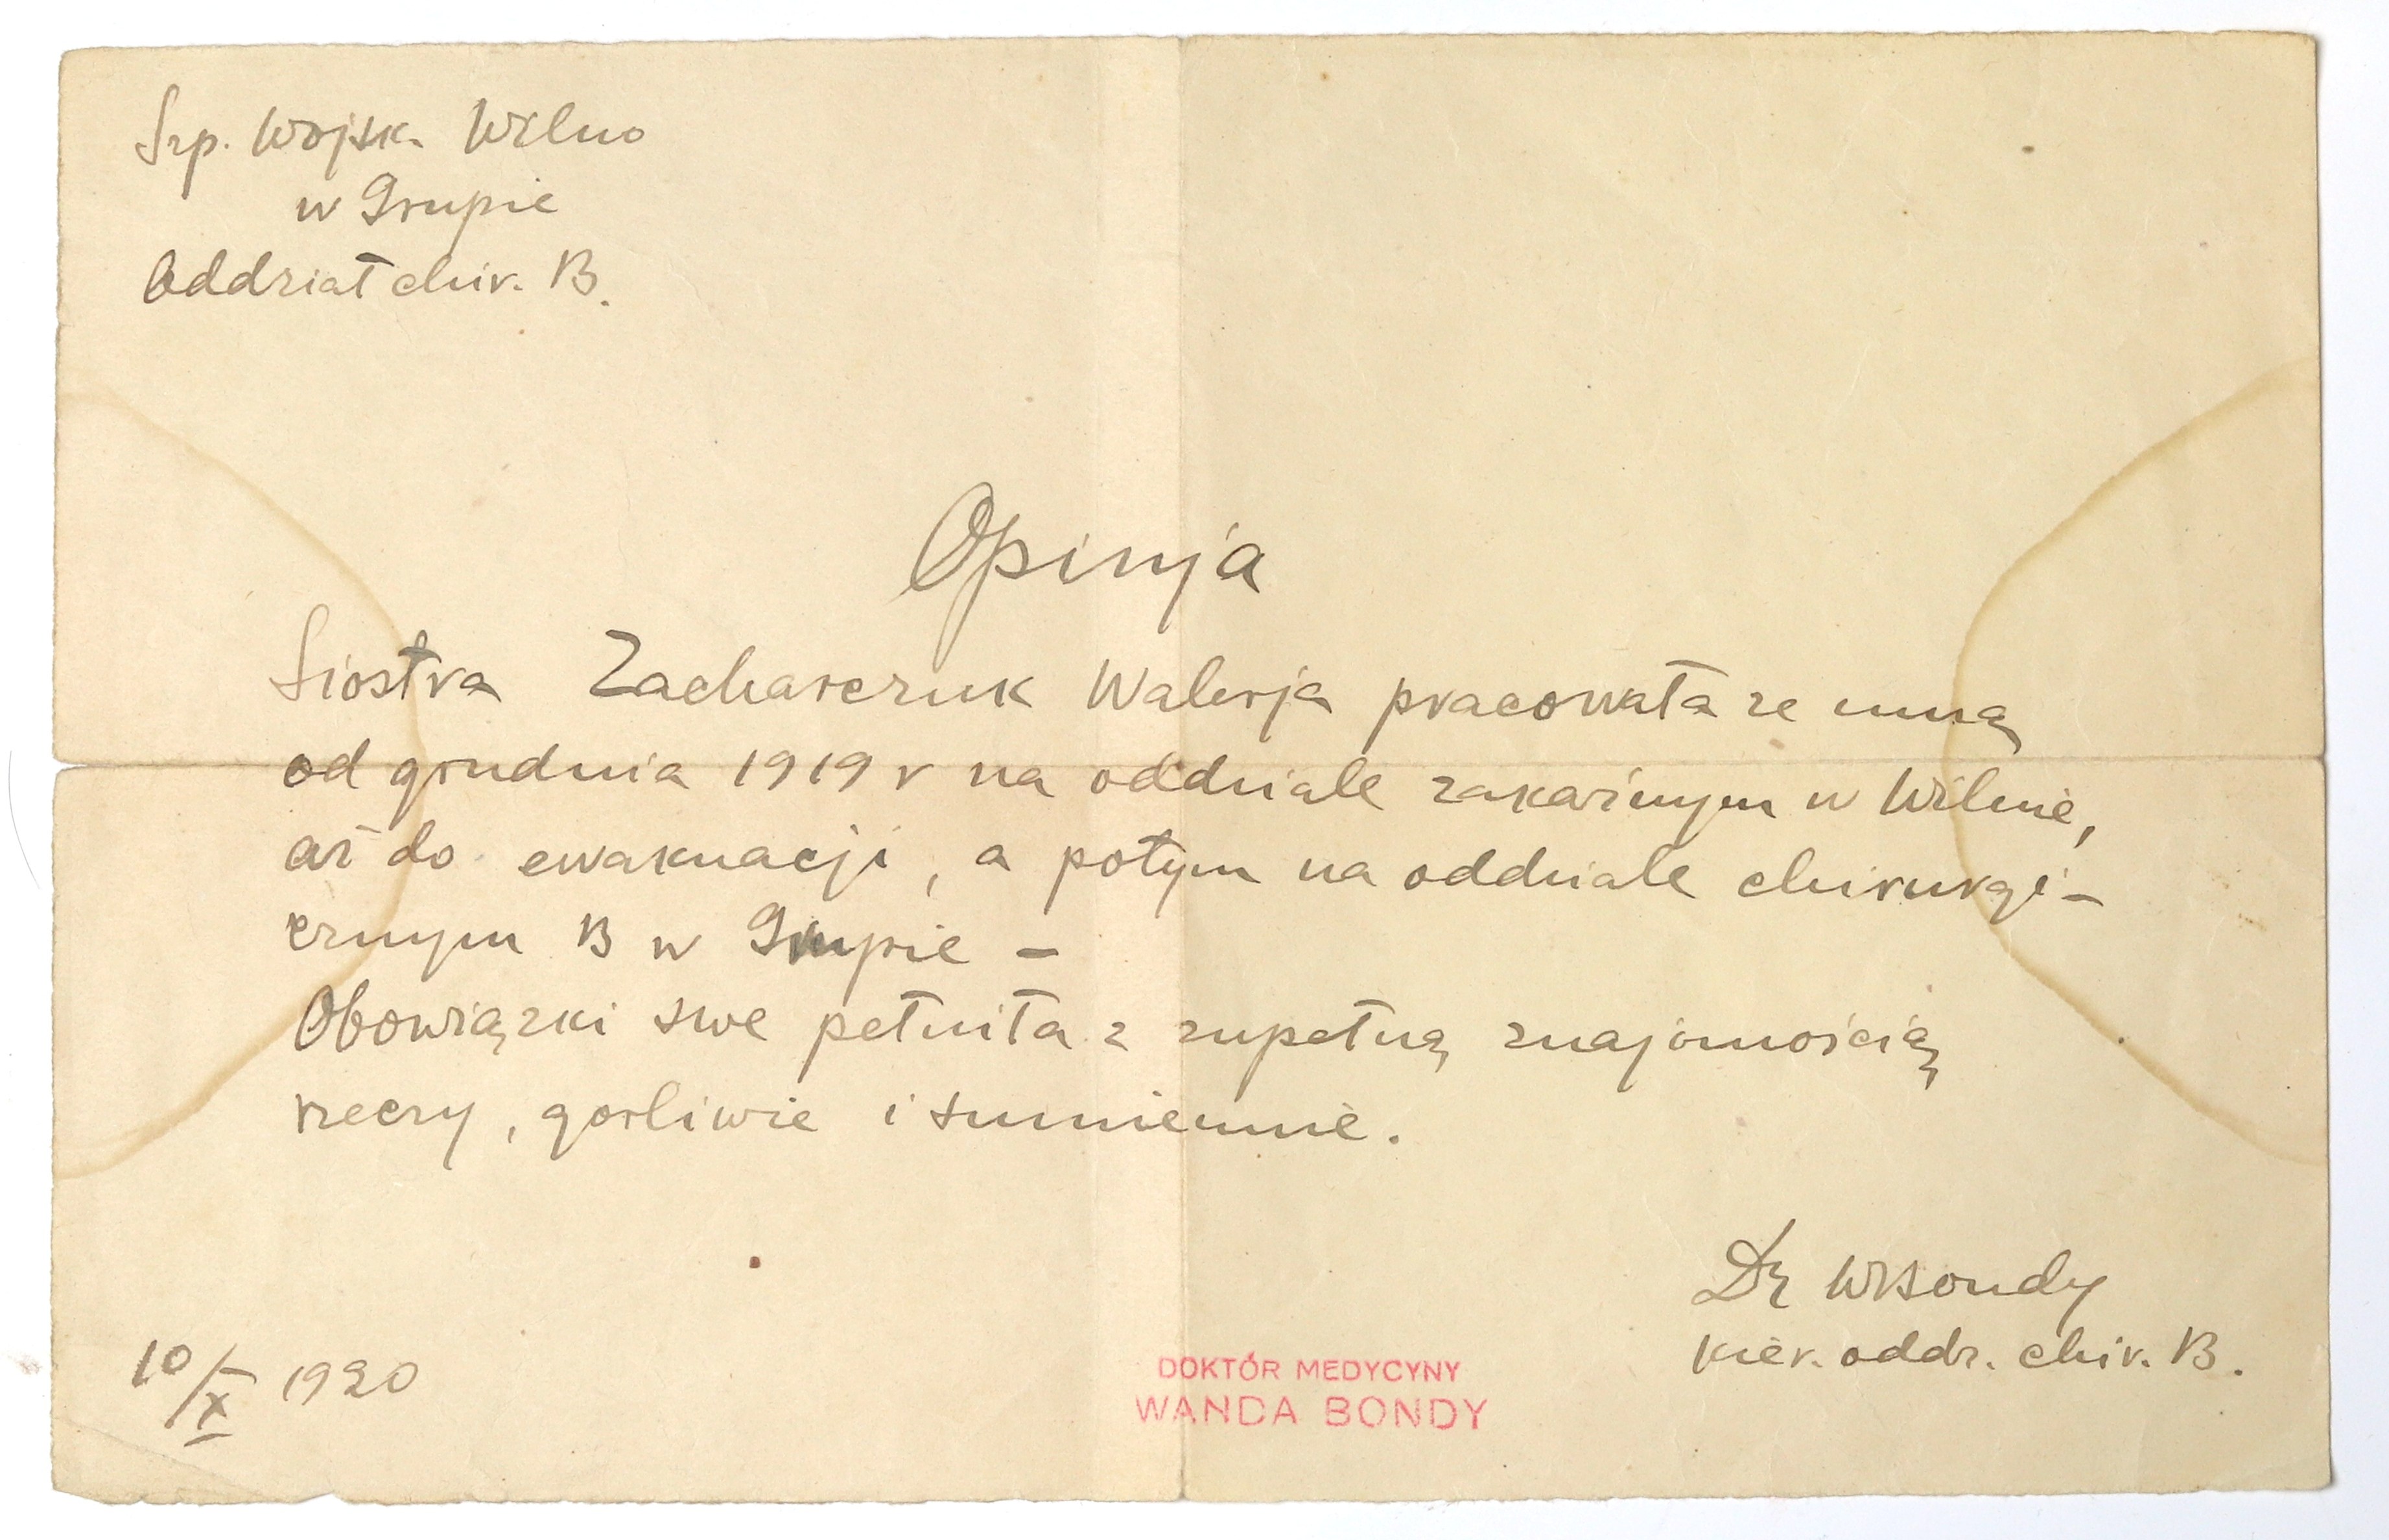 Szp. Wojsk. Wilno
w Grupie
Oddział chir. B.
Opinja
Siostra Zacharczuk Walerja pracowała ze mną
od grudnia 1919 r na oddziale zakaźnym w Wilnie,
aż do ewakuacji, a potym na oddziale chirurgi-
cznym B w Grupie –
Obowiązki swe pełniła z zupełną znajomością
rzeczy, gorliwie i sumiennie.
Dr WBondy
kier. oddz. chir. B.
10/X 1920
DOKTÓR MEDYCYNY
WANDA BONDY